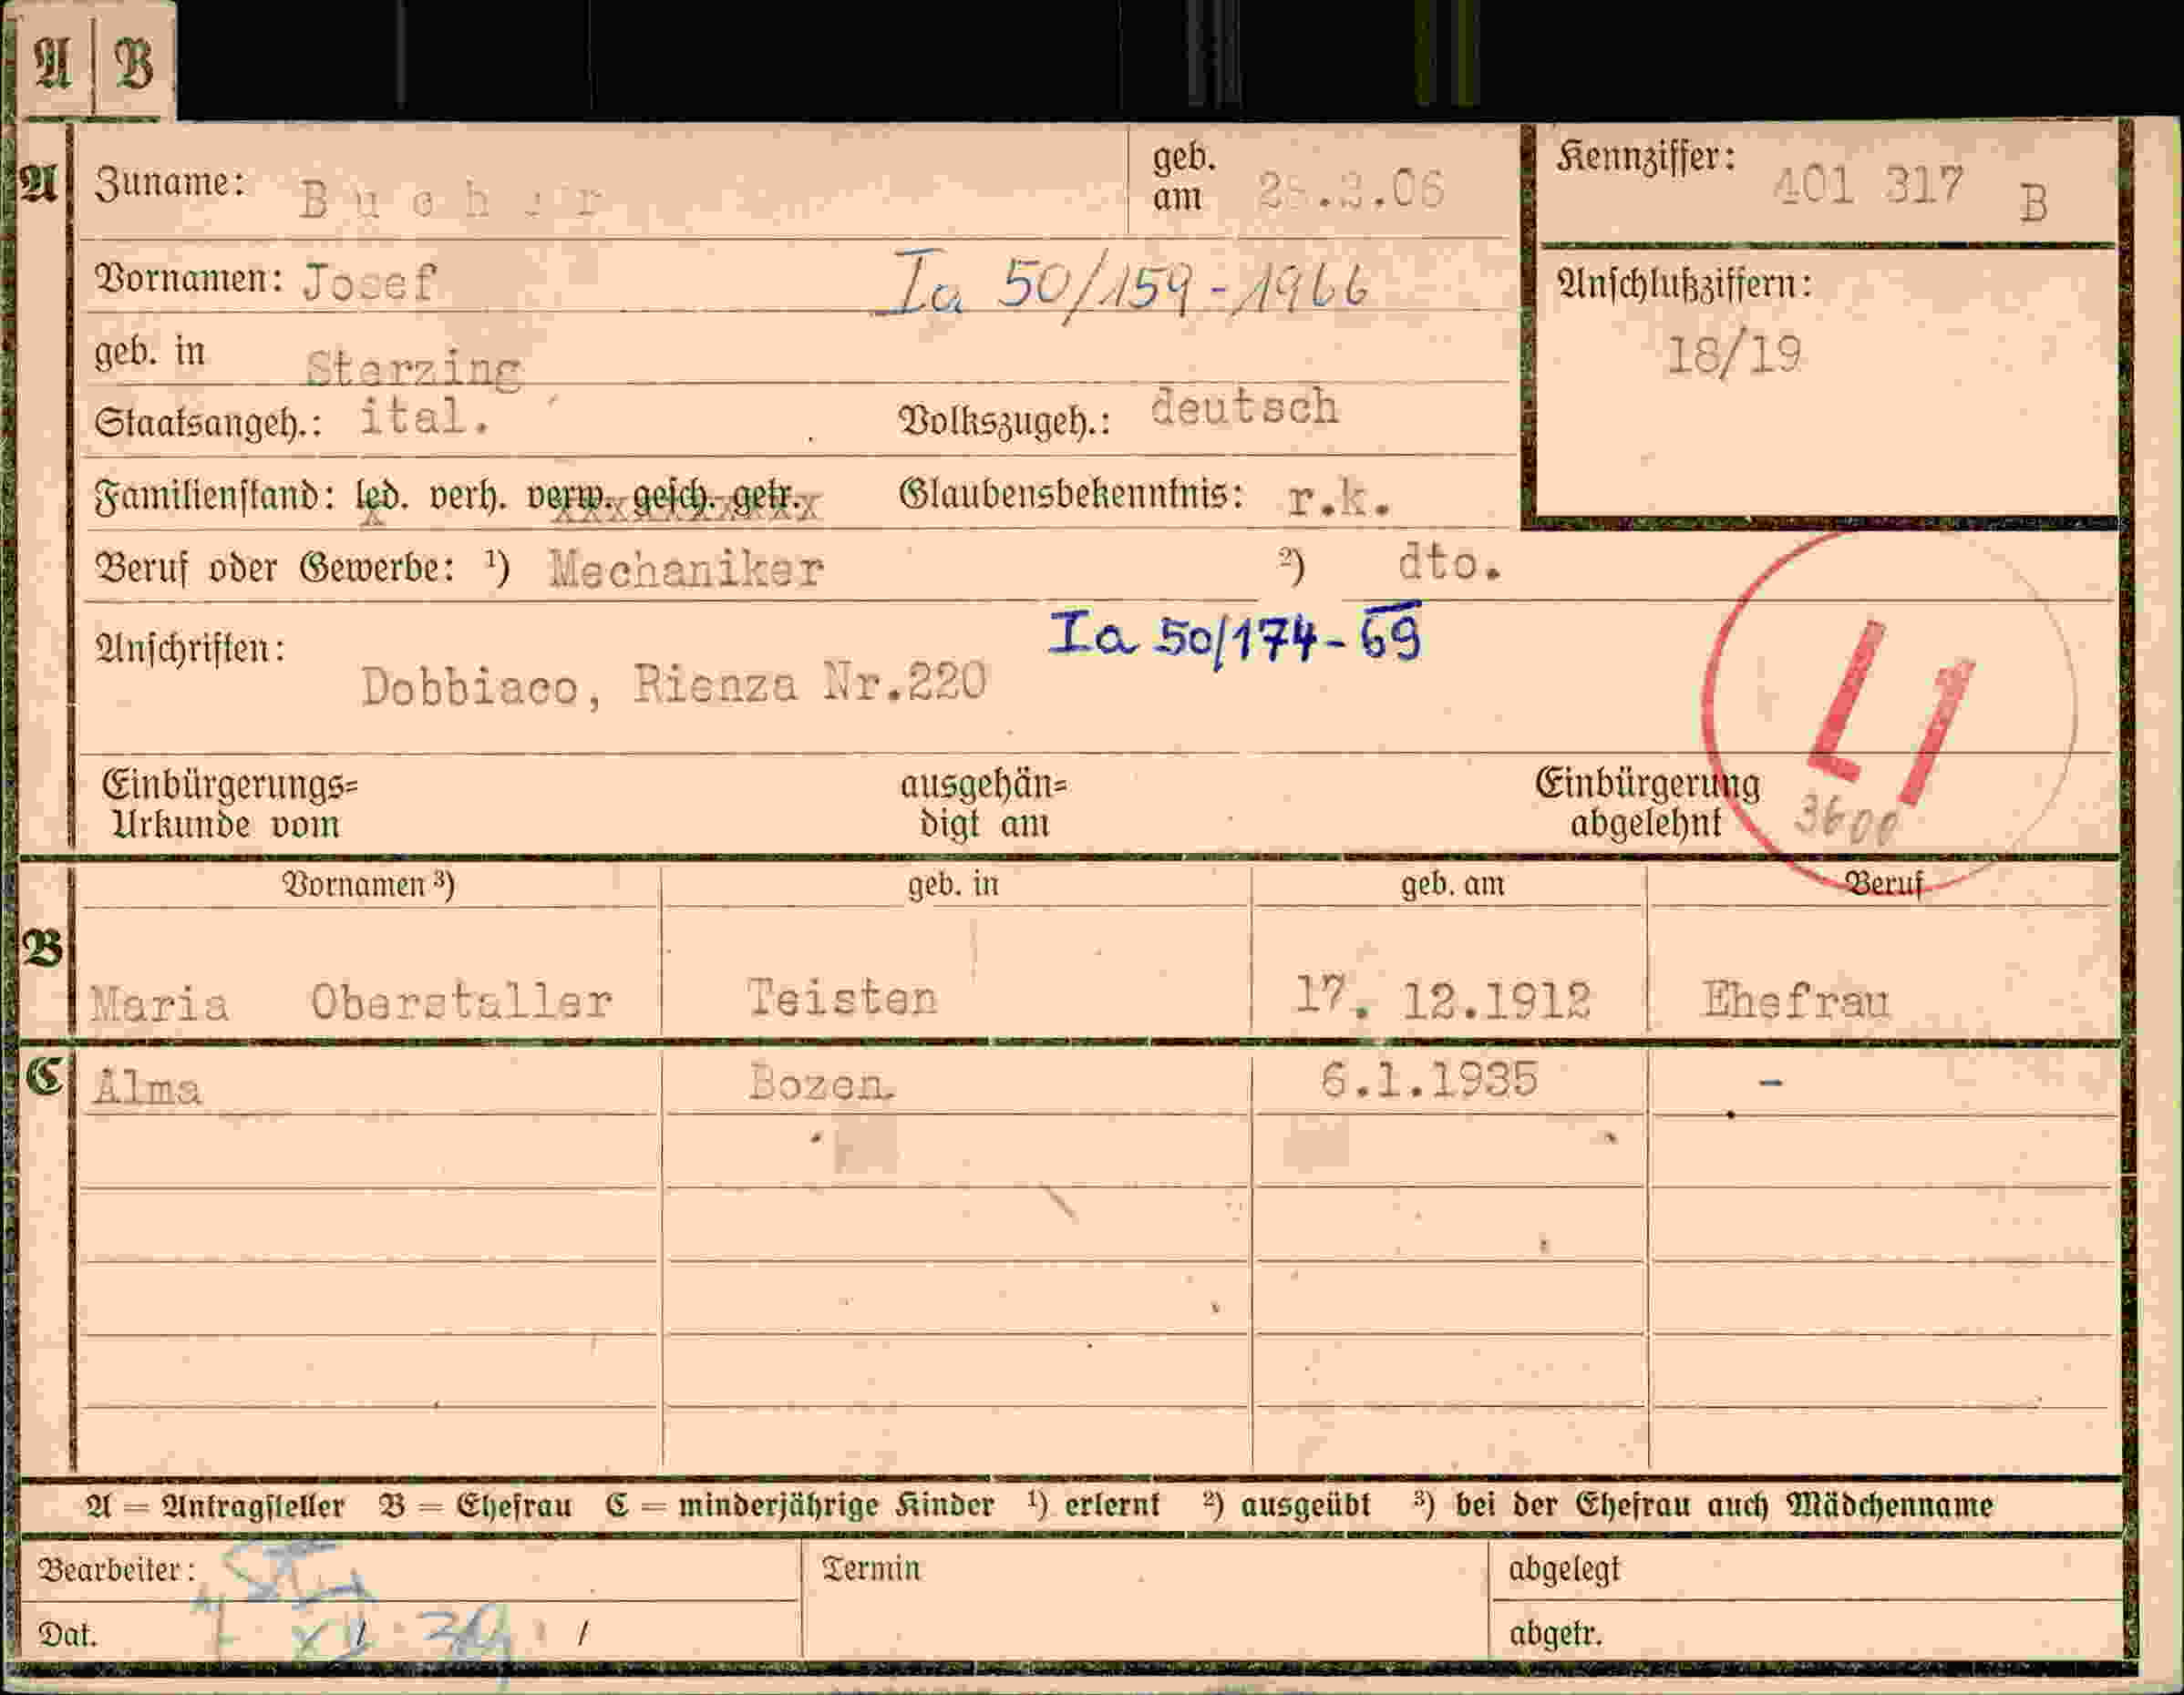 A B
A Zuname: Bucher geb. am .06 Kennziffer: 401 317 B
Vornamen: Josef Ia 50/159-1966 Anschlußziffern:
18/19
geb. in Sterzing
Staatsangeh.: ital. Volkszugeh.: deutsch
Familienstand: led. verh. verw. gesch. getr. Glaubensbekenntnis: r.k.
Beruf oder Gewerbe: ¹) Mechaniker ²) dto.
Anschriften: Ia 50/174-69
Dobbiaco, Rienza Nr.220
L1
Einbürgerungs= ausgehän= Einbürgerung
Urkunde vom digt am abgelehnt 3600
Vornamen ³) geb. in geb. am Beruf
B Maria Oberstaller Teisten 17. 12.1912 Ehefrau
C Alma Bozen 6.1.1935 -
A = Antragsteller B = Ehefrau C = minderjährige Kinder ¹) erlernt ²) ausgeübt ³) bei der Ehefrau auch Mädchenname
Bearbeiter: Termin abgelegt
Dat. abgetr.